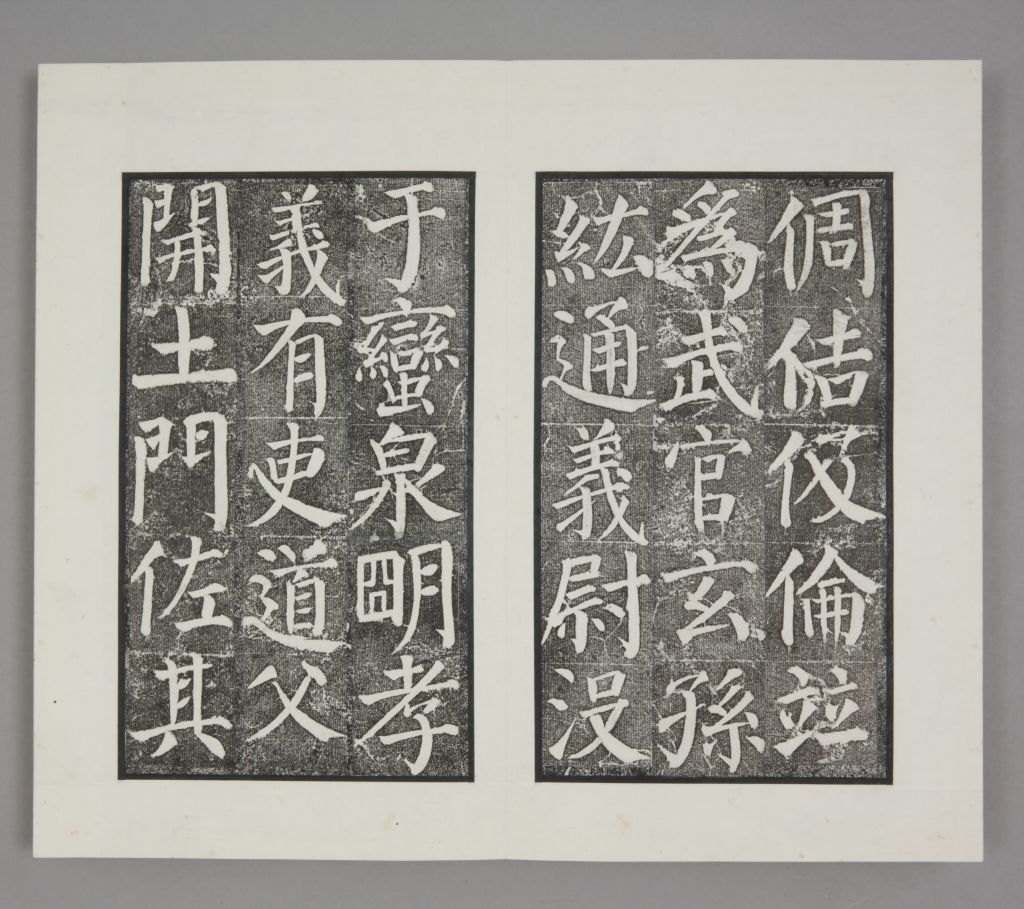 倜佶伋倫並
為武官玄孫
紘通義尉没
于蠻泉明孝
義有吏道父
開土門佐其